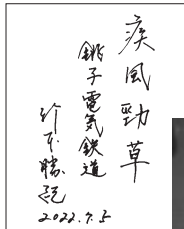 疾風勁草
銚子電気鉄道
竹本勝紀
2022.7.5